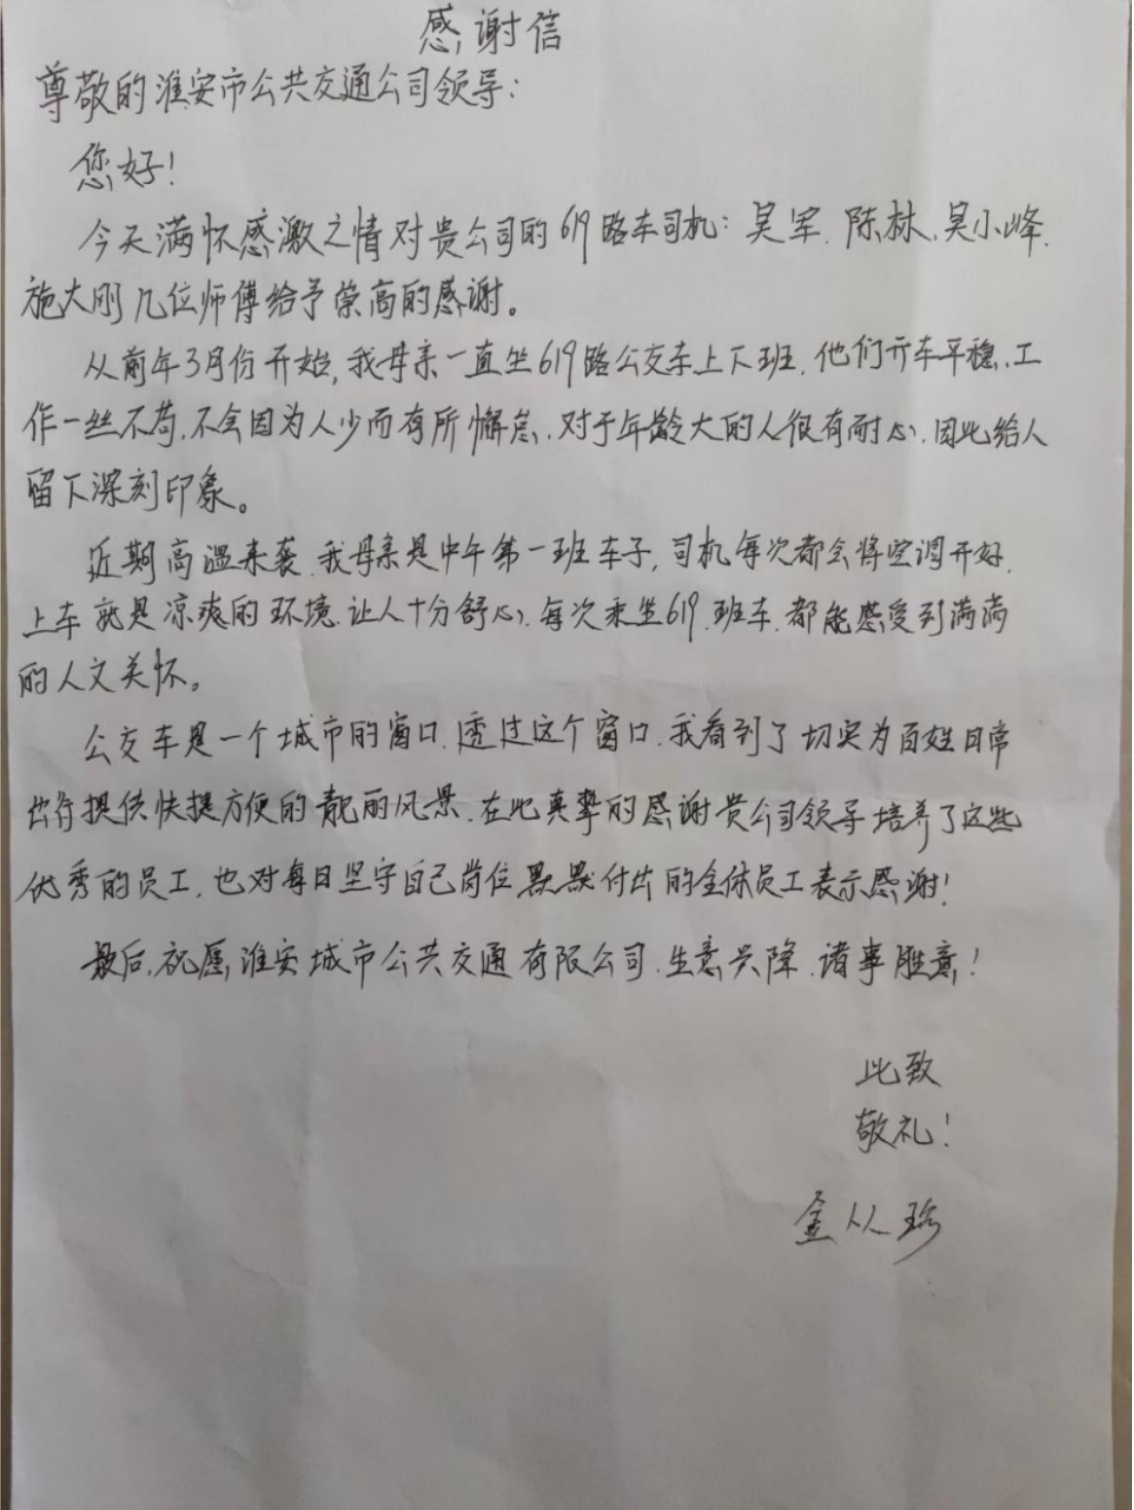 感谢信
尊敬的淮安市公共交通公司领导：
您好！
今天满怀感激之情对贵公司的619路车司机：吴军、陈林、吴小峰、
施大刚几位师傅给予崇高的感谢。
从前年3月份开始，我母亲一直坐619路公交车上下班，他们开车平稳、工
作一丝不苟，不会因为人少而有所懈怠，对于年龄大的人很有耐心，因此给人
留下深刻印象。
近期高温来袭，我母亲是中午第一班车子，司机每次都会将空调开好，
上车就是凉爽的环境，让人十分舒心，每次乘坐619，班车，都能感受到满满
的人文关怀。
公交车是一个城市的窗口，透过这个窗口，我看到了切实为百姓日常
出行提供快捷方便的靓丽风景，在此真挚的感谢贵公司领导培养了这些
优秀的员工，也对每日坚守自己岗位默默付出的全体员工表示感谢！
最后，祝愿淮安城市公共交通有限公司，生意兴隆，诸事胜意！
此致
敬礼！
金从珍